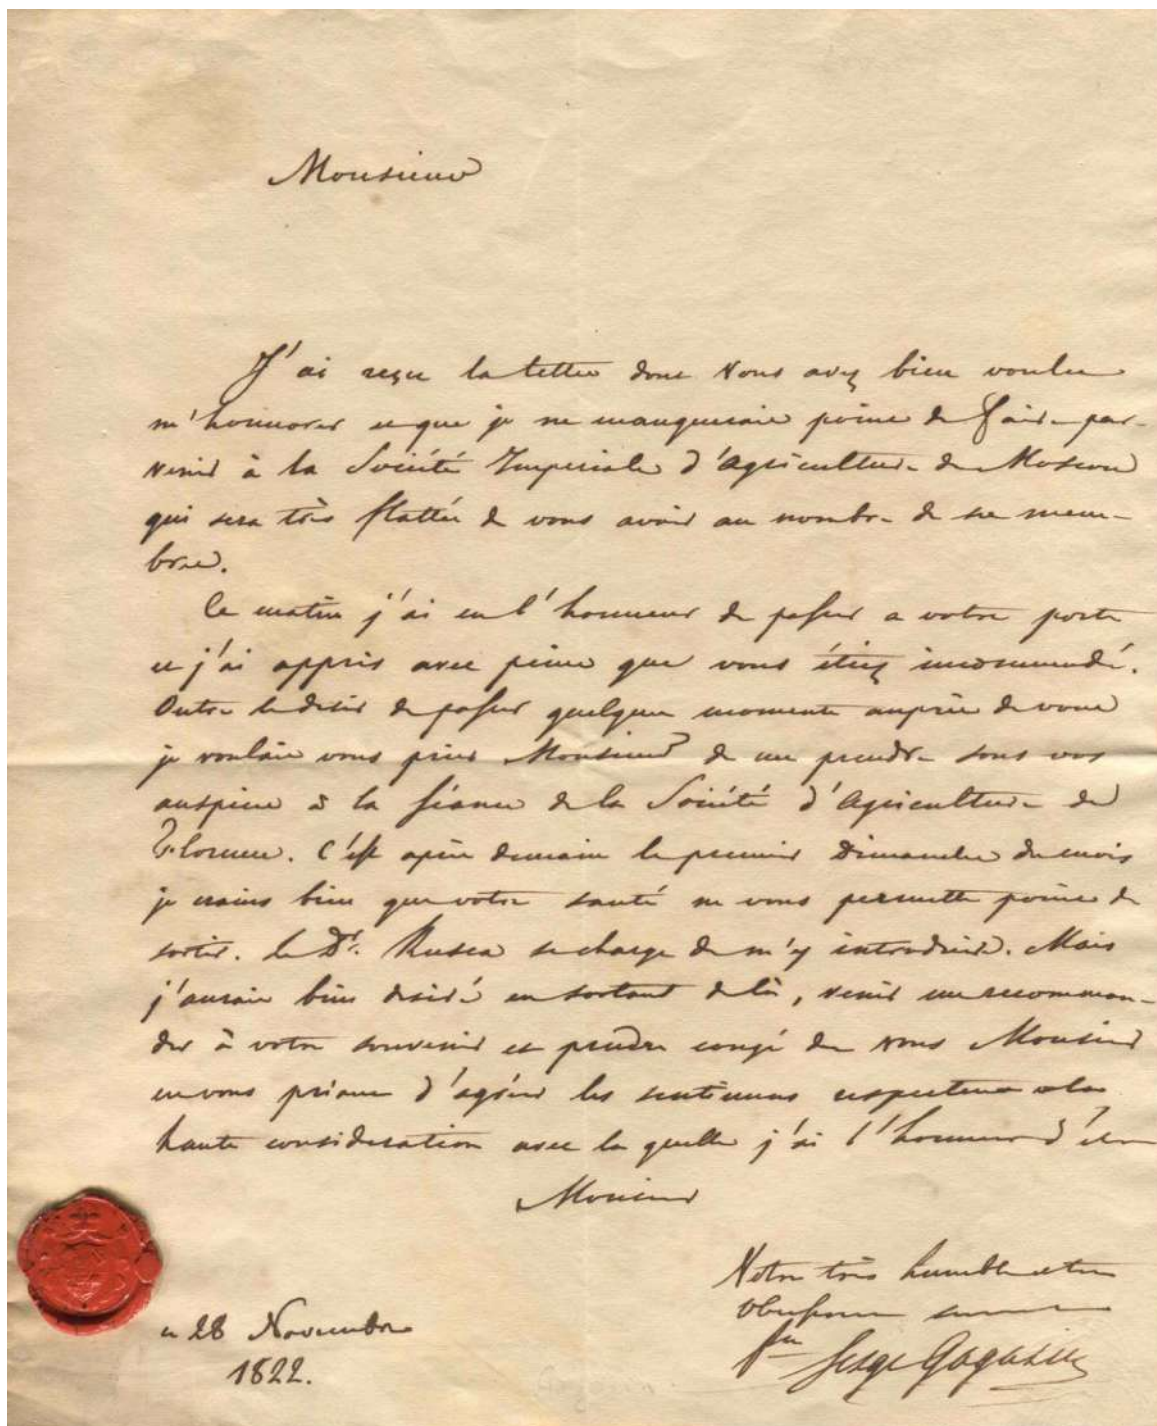 Monsieur
J'ai reçu la lettre dont Vous avez bien voulu
m'honnorer et que je ne manquerais point de faire par-
venir à la Société Imperiale d'Agriculture de Moscou
qui sera très flattée de vous avoir au nombre de ses mem-
bres.
Ce matin j'ai eu l'honneur de passer a votre porte
et j'ai appris avec peine que vous étiez incommodé.
Outre le desir de passer quelques moments auprès de vous
je voulais vous prier Monsieur de me prendre sous vos
auspices à la séance de la Société d'Agriculture de
Florence. C'est après demain le premier Dimanche du mois
je crains bien que votre santé ne vous permette point de
sortir. Le Dr. Rusca se charge de m'y introduire. Mais
j'aurais bien desiré en sortant delà, venir me recomman-
der à votre souvenir et prendre congé de Vous Monsieur
en vous priant d'agréer les sentimens respectueux et la
haute consideration avec la quelle j'ai l'honneur d'etre
Monsieur
Votre très humble et très
obeissant serviteur
Pce Serge Gagarin
ce 28 Novembre
1822.